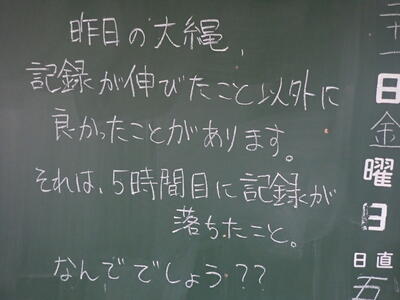 昨日の大縄、
記録が伸びたこと以外に
良かったことがあります。
それは、5時間目に記録が
落ちたこと。
なんででしょう??
日
金
曜
日
日直
五